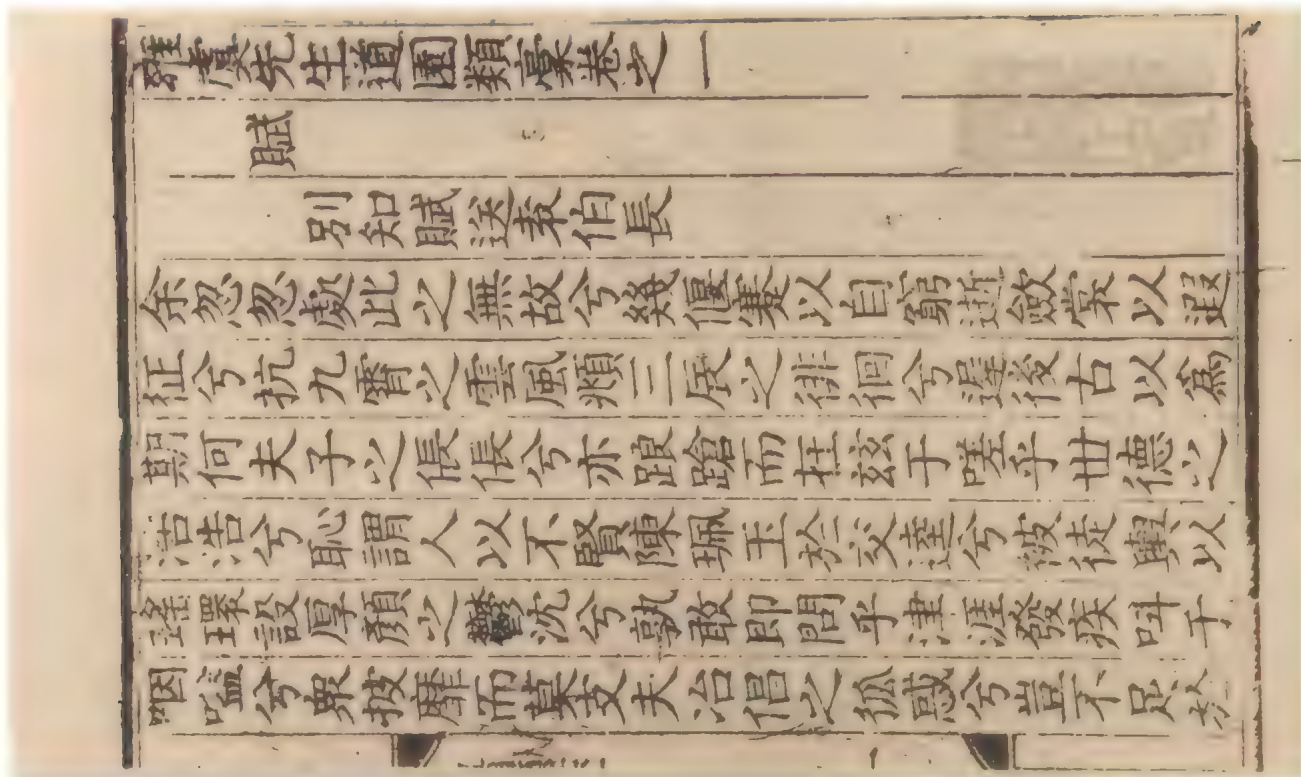 雍虞先生道園類稾卷之一
賦
別知賦送袁伯長
余忽忽處此之無故兮偃蹇以自窮逝斂裳以遐
征兮抗九霄之雲風頫三辰之徘徊兮後古以為
期何夫子之倀倀兮亦踉蹌而在茲于嗟乎世德之
浩浩兮恥謂人以不賢陳珮玉於交逵兮徒輿以
瓌設厚顏之鬱沈兮孰敢即問乎津涯發疾呼于
咽嗌兮衆披靡而莫支夫冶倡之狐惑兮豈不足於